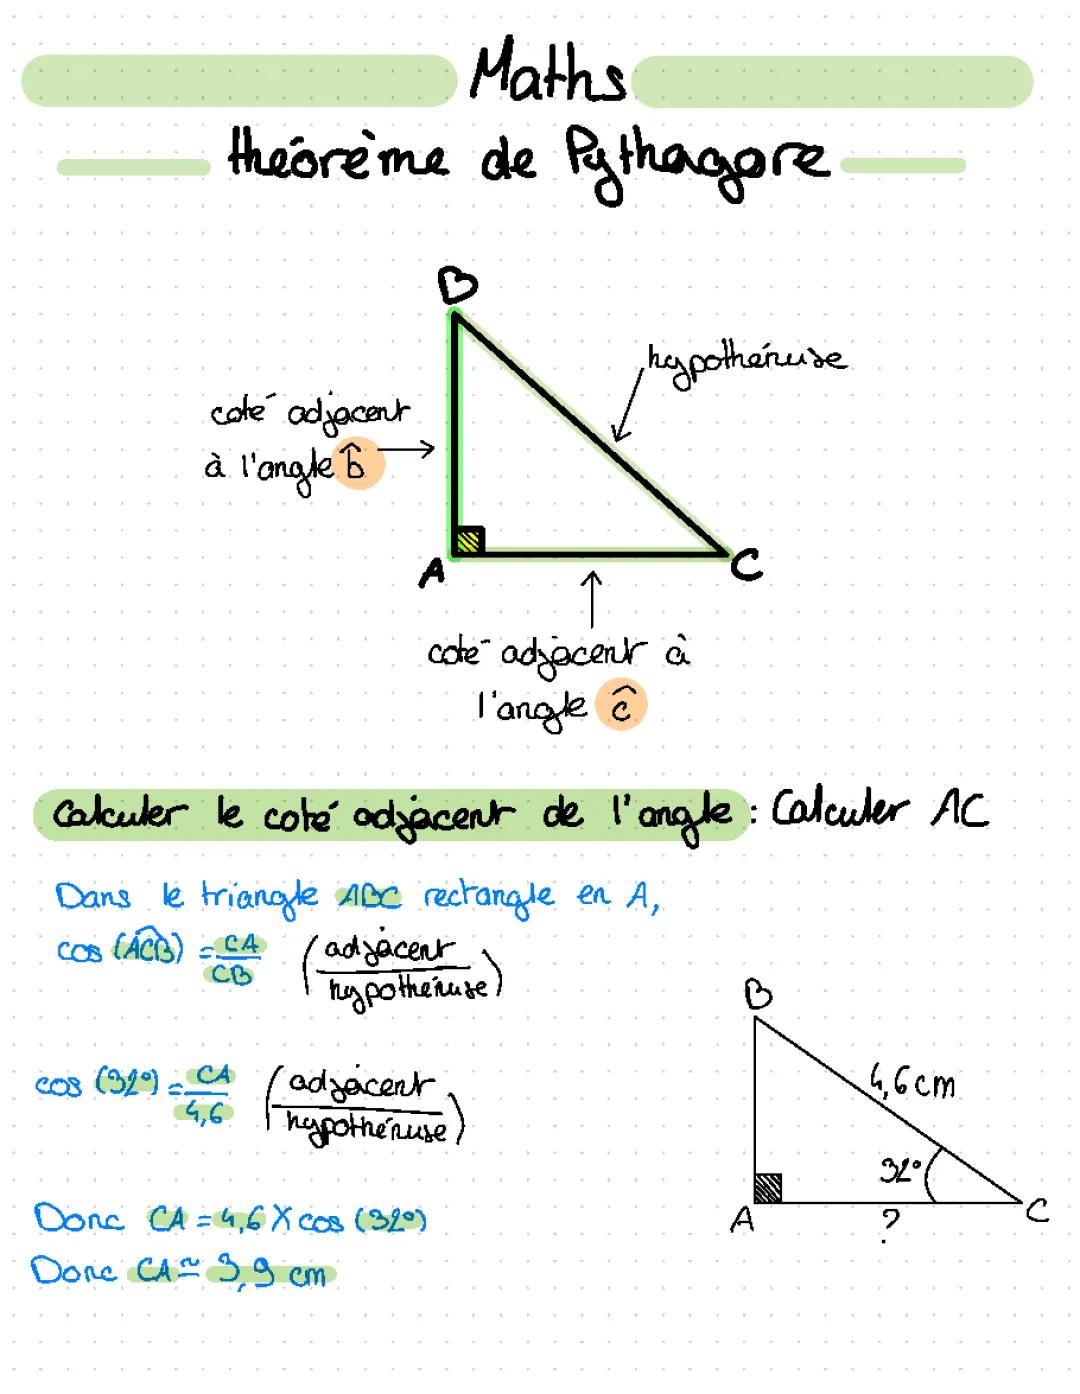 Maths
théorème de Pythagore
B
hypothénuse
coté adjacent
à l'angle b̂
A
C
coté adjacent à
l'angle ĉ
Calculer le coté adjacent de l'angle : Calculer AC
Dans le triangle ABC rectangle en A,
cos (ACB) = CA/CB (adjacent/hypothénuse)
B
cos (32°) = CA/4,6 (adjacent/hypothénuse)
4,6 cm
32°
A
?
C
Donc CA = 4,6 X cos (32°)
Donc CA ≃ 3,9 cm